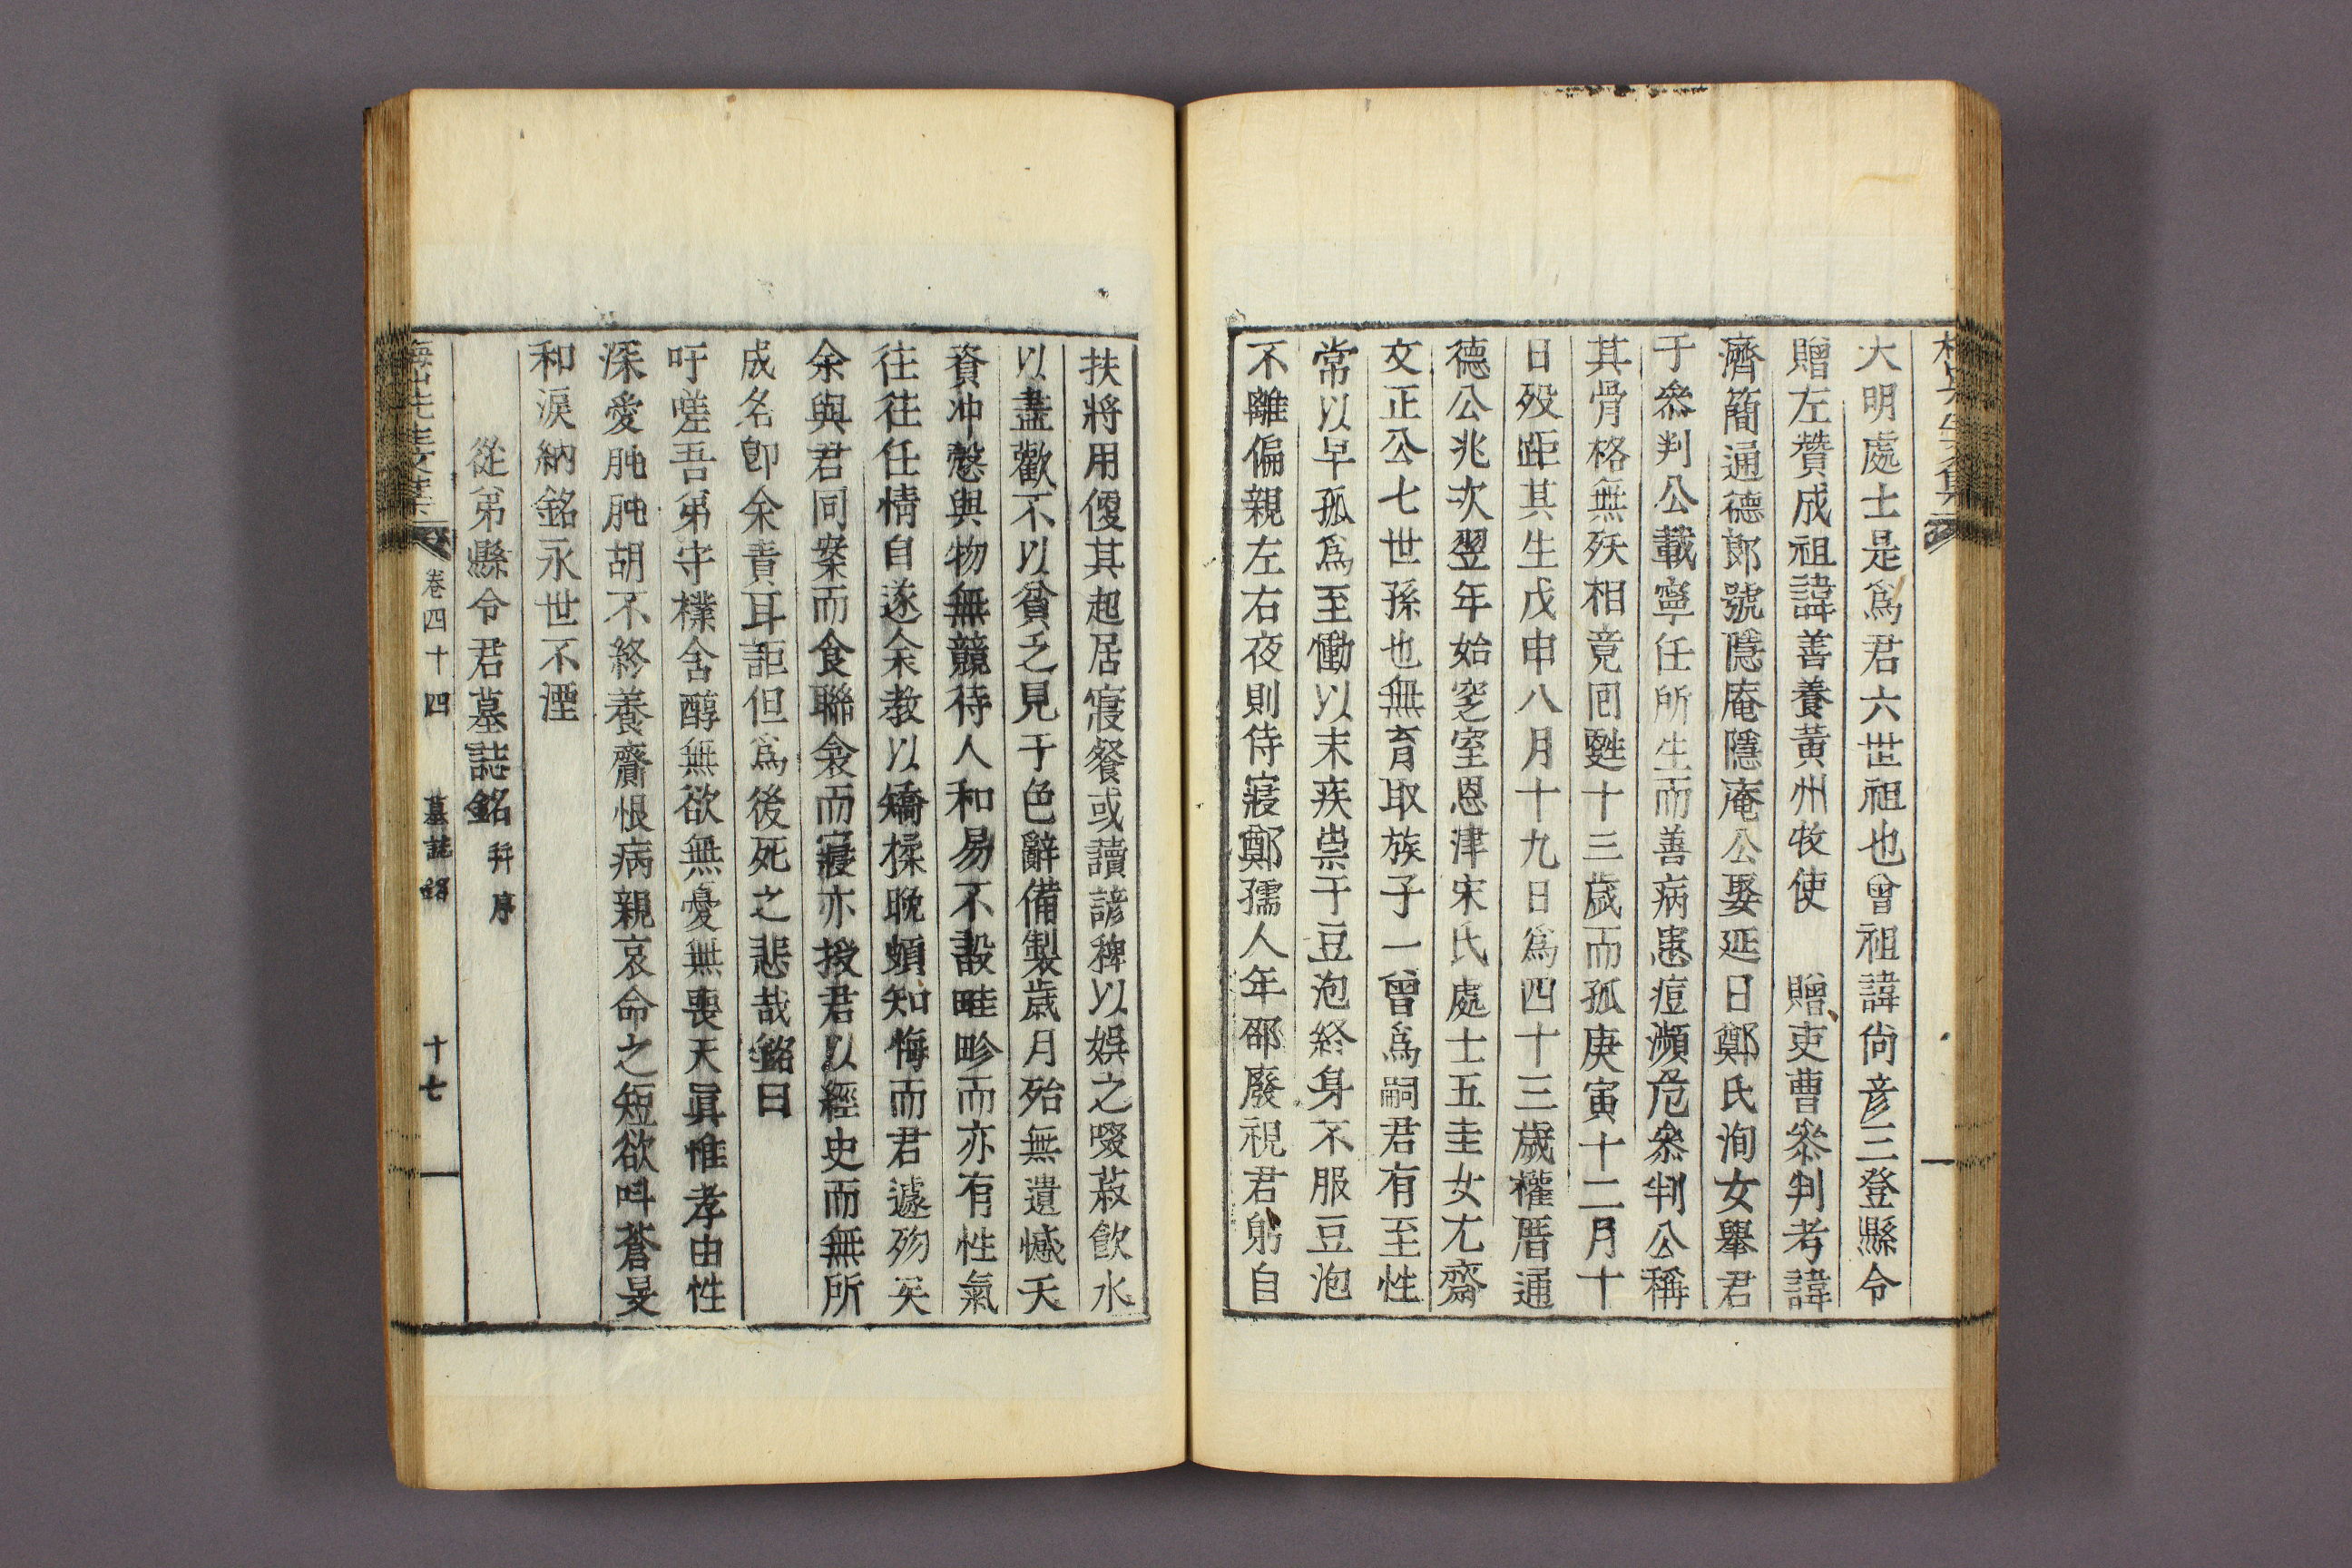 大明處士是爲君六世祖也曾祖諱尙彦三登縣令
贈左贊成祖諱善養黃州牧使　贈吏曹叅判考諱
濟簡通德郞號隱庵隱庵公娶延日鄭氏洵女擧君
于叅判公載寧任所生而善病患痘瀕危叅判公稱
其骨格無殀相竟囘甦十三歲而孤庚寅十二月十
日歿距其生戊申八月十九日爲四十三歲權厝通
德公兆次翌年始窆室恩津宋氏處士五圭女尤齋
文正公七世孫也無育取族子一曾爲嗣君有至性
常以早孤爲至慟以末疾祟于豆泡終身不服豆泡
不離偏親左右夜則侍寢鄭孺人年邵廢視君躬自
扶將用便其起居寢餐或讀諺稗以娛之啜菽飮水
以盡歡不以貧乏見于色辭備製歲月殆無遺憾天
資冲慤與物無競待人和易不設畦畛而亦有性氣
徃徃任情自遂余教以矯揉晩頗知悔而君遽歿矣
余與君同案而食聯衾而寢亦授君以經史而無所
成名卽余責耳詎但爲後死之悲哉銘曰
吁嗟吾弟守樸含醇無欲無憂無喪天眞惟孝由性
深愛肫肫胡不終養齎恨病親哀命之短欲叫蒼旻
和淚納銘永世不湮
從弟縣令君墓誌銘 幷序
卷四十四　墓誌銘　十七